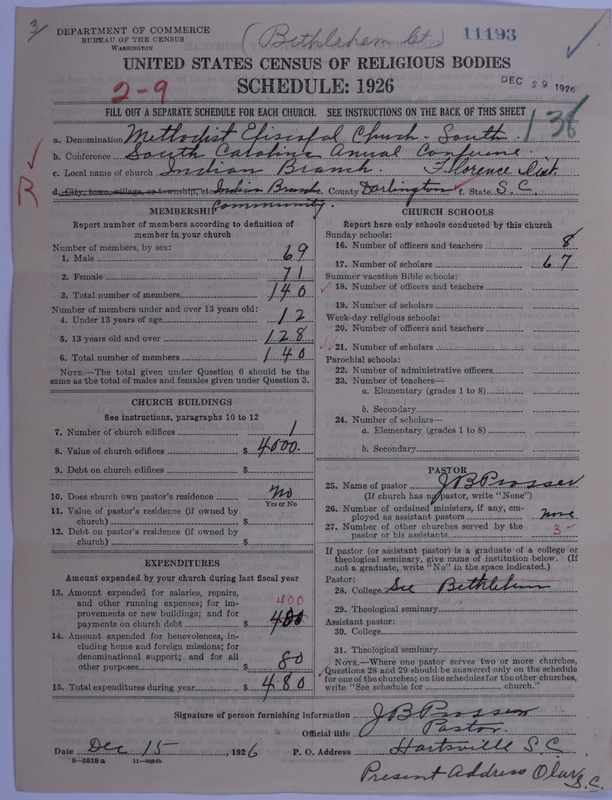 3
DEPARTMENT OF COMMERCE
BUREAU OF THE CENSUS
WASHINGTON
(Bethlehem Ct)
11193
UNITED STATES CENSUS OF RELIGIOUS BODIES
SCHEDULE: 1926
DEC 29 1926
2-9
FILL OUT A SEPARATE SCHEDULE FOR EACH CHURCH. SEE INSTRUCTIONS ON THE BACK OF THIS SHEET
138
a. Denomination Methodist Episcopal Church - South.
b. Conference South Carolina Annual Conference.
c. Local name of church Indian Branch. Florence Dist.
R
d. City, town, village, or township, etc. Indian Branch e. County Darlington f. State S.C.
Community.
MEMBERSHIP
Report number of members according to definition of
member in your church
Number of members, by sex:
1. Male 69
2. Female 71
3. Total number of members 140
Number of members under and over 13 years old:
4. Under 13 years of age 12
5. 13 years old and over 128
6. Total number of members 140
NOTE.—The total given under Question 6 should be the
same as the total of males and females given under Question 3.
CHURCH BUILDINGS
See instructions, paragraphs 10 to 12
7. Number of church edifices 1
8. Value of church edifices $ 4000.
9. Debt on church edifices $
10. Does church own pastor's residence No
Yes or No
11. Value of pastor's residence (if owned by
church) $
12. Debt on pastor's residence (if owned by
church) $
EXPENDITURES
Amount expended by your church during last fiscal year
13. Amount expended for salaries, repairs,
and other running expenses; for im-
provements or new buildings; and for
payments on church debt $ 400
14. Amount expended for benevolences, in-
cluding home and foreign missions; for
denominational support; and for all
other purposes $ 80
15. Total expenditures during year $ 480
CHURCH SCHOOLS
Report here only schools conducted by this church
Sunday schools:
16. Number of officers and teachers 8
17. Number of scholars 67
Summer vacation Bible schools:
18. Number of officers and teachers
19. Number of scholars
Week-day religious schools:
20. Number of officers and teachers
21. Number of scholars
Parochial schools:
22. Number of administrative officers
23. Number of teachers—
a. Elementary (grades 1 to 8)
b. Secondary
24. Number of scholars—
a. Elementary (grades 1 to 8)
b. Secondary
PASTOR
25. Name of pastor J B Prosser
(If church has no pastor, write "None")
26. Number of ordained ministers, if any, em-
ployed as assistant pastors none
27. Number of other churches served by the
pastor or his assistants 3
If pastor (or assistant pastor) is a graduate of a college or
theological seminary, give name of institution below. (If
not a graduate, write "No" in the space indicated.)
Pastor:
28. College See Bethlehem
29. Theological seminary
Assistant pastor:
30. College
31. Theological seminary
NOTE.—Where one pastor serves two or more churches,
Questions 28 and 29 should be answered only on the schedule
for one of the churches; on the schedules for the other churches,
write "See schedule for church."
Signature of person furnishing information J B Prosser
Official title Pastor.
Date Dec 15, 1926 P. O. Address Hartsville S.C.
8—5518 a
Present Address Olar, S.C.